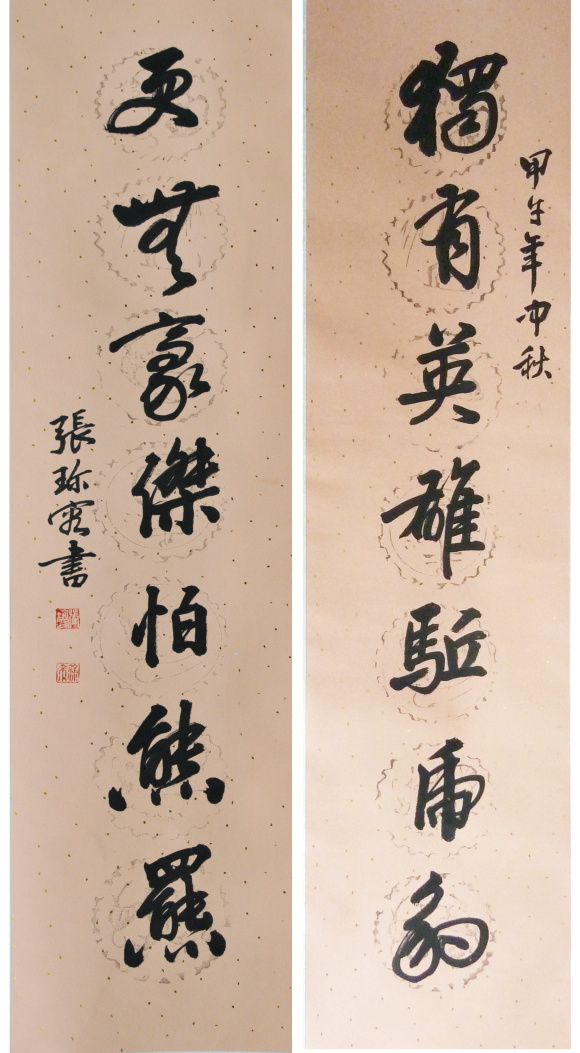 甲午年仲秋
獨有英雄駈虎豹
更無豪傑怕熊羆
張珎書